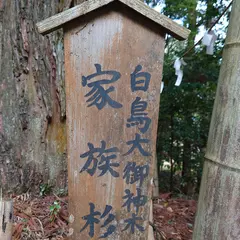 白鳥大御神木
家族杉